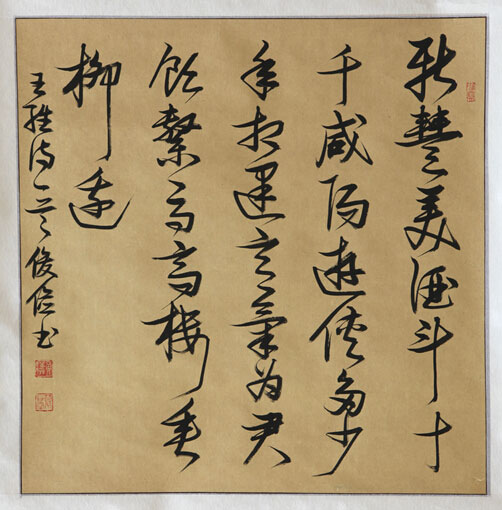 新豐美酒斗十
千咸陽遊俠多少
年相逢意氣為君
飲繫馬高樓垂
柳邊
王維詩一首俊書